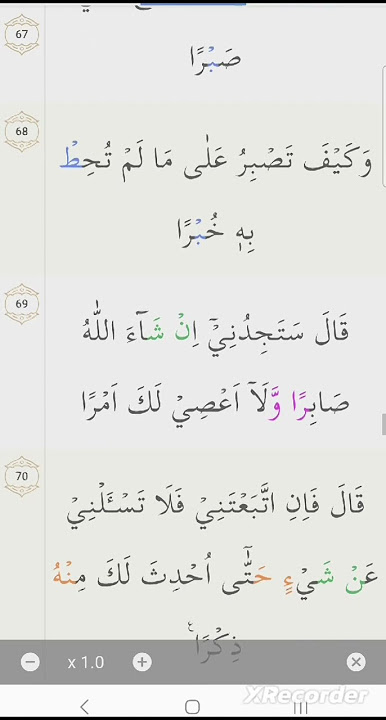 67
صَبْرًا
68
وَكَيْفَ تَصْبِرُ عَلٰى مَا لَمْ تُحِطْ
بِهٖ خُبْرًا
69
قَالَ سَتَجِدُنِيْٓ اِنْ شَآءَ اللّٰهُ
صَابِرًا وَّلَآ اَعْصِيْ لَكَ اَمْرًا
70
قَالَ فَاِنِ اتَّبَعْتَنِيْ فَلَا تَسْـَٔلْنِيْ
عَنْ شَيْءٍ حَتّٰٓى اُحْدِثَ لَكَ مِنْهُ
ذِكْرًا ࣖ
x 1.0
XRecorder